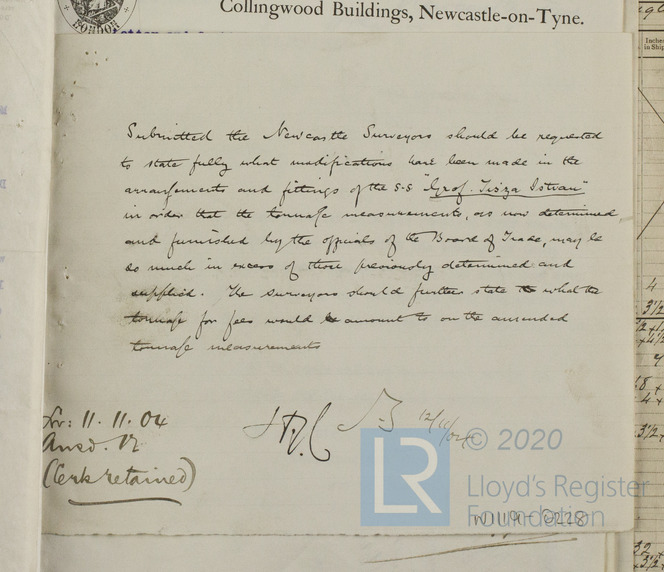 Collingwood Buildings, Newcastle-on-Tyne.
LONDON
Inches
in Ship
Submitted the Newcastle Surveyors should be requested
to state fully what modifications have been made in the
arrangements and fittings of the S-S "Grof. Tisza Istvan"
in order that the tonnage measurements, as now determined
and furnished by the officials of the Board of Trade, may be
so much in excess of those previously determined and
supplied. The Surveyors should further state what the
tonnage for fees would amount to on the amended
tonnage measurements
11.11.04
Ansd. 12
(Cerk retained)
12/11/04
LR
© 2020
Lloyd's Register
Foundation
W1119-0228